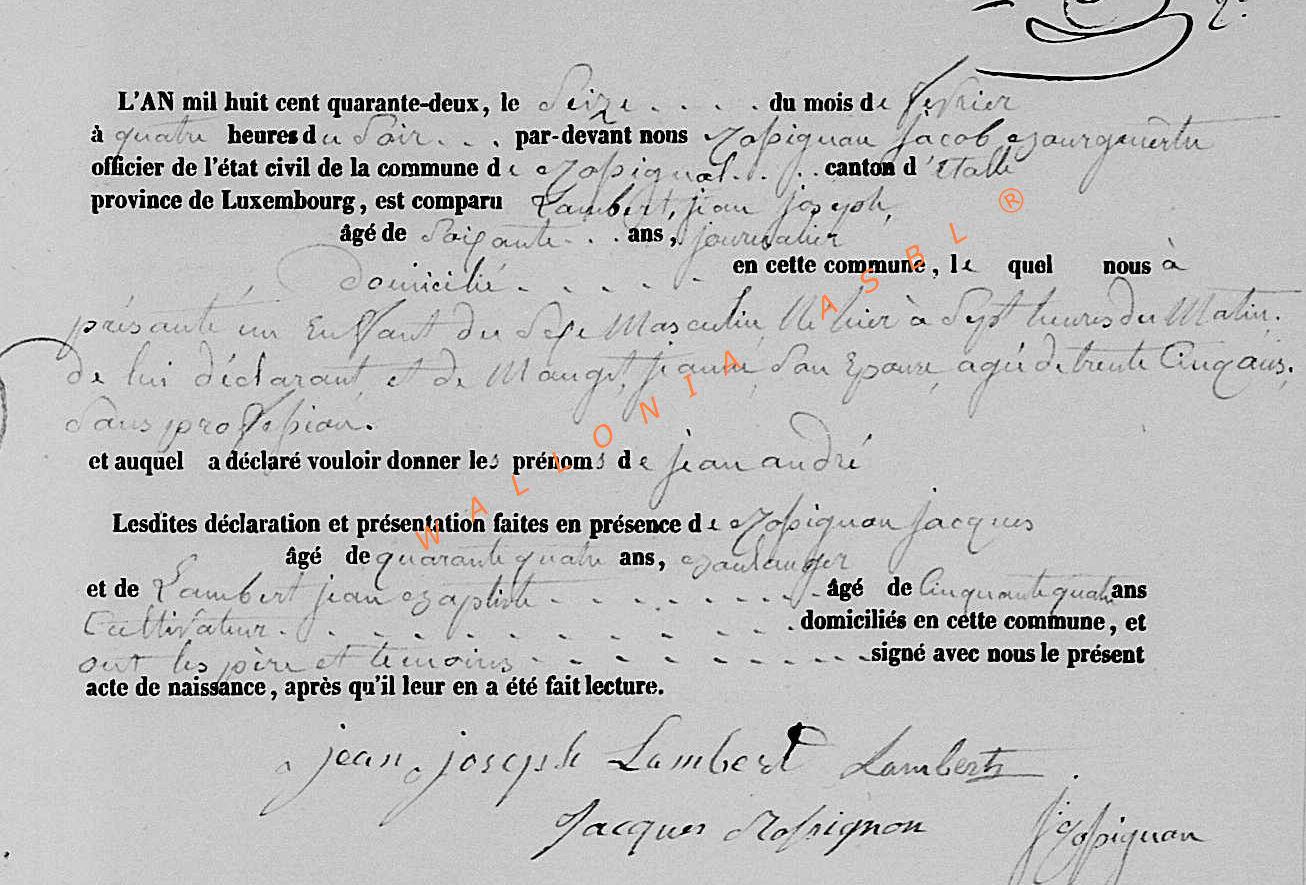 L'AN mil huit cent quarante-deux, le Seize . . . . du mois de fevrier
à quatre heures du Soir . . . par-devant nous Rossignon Jacob Bourguemertre
officier de l'état civil de la commune de Rossignol . . . . canton d'Etalle
province de Luxembourg, est comparu Lambert, jean joseph,
âgé de Soixante . . . ans, journalier
Domicilié . . . . . en cette commune, le quel nous à
présenté un Enffant du Sexe Masculin, Né hier à Sept heures du Matin.
de lui déclarant et de Mauget, jeanne, Son Epouse, agée de trente Cinq ans.
Sans proffession.
et auquel a déclaré vouloir donner les prénoms de jean andré
Lesdites déclaration et présentation faites en présence de Rossignon jacques
âgé de quarante quatre ans, Boulanger
et de Lambert jean Baptiste - - - - - - - - âgé de Cinquante quatre ans
Cultivateur. - - - - - - - - - - domiciliés en cette commune, et
ont les père et temoins - - - - - - - - signé avec nous le présent
acte de naissance, après qu'il leur en a été fait lecture.
jean joseph Lambert Lambert
Jacques Rossignon J. Rossignon
WALLONIA ASBL ®